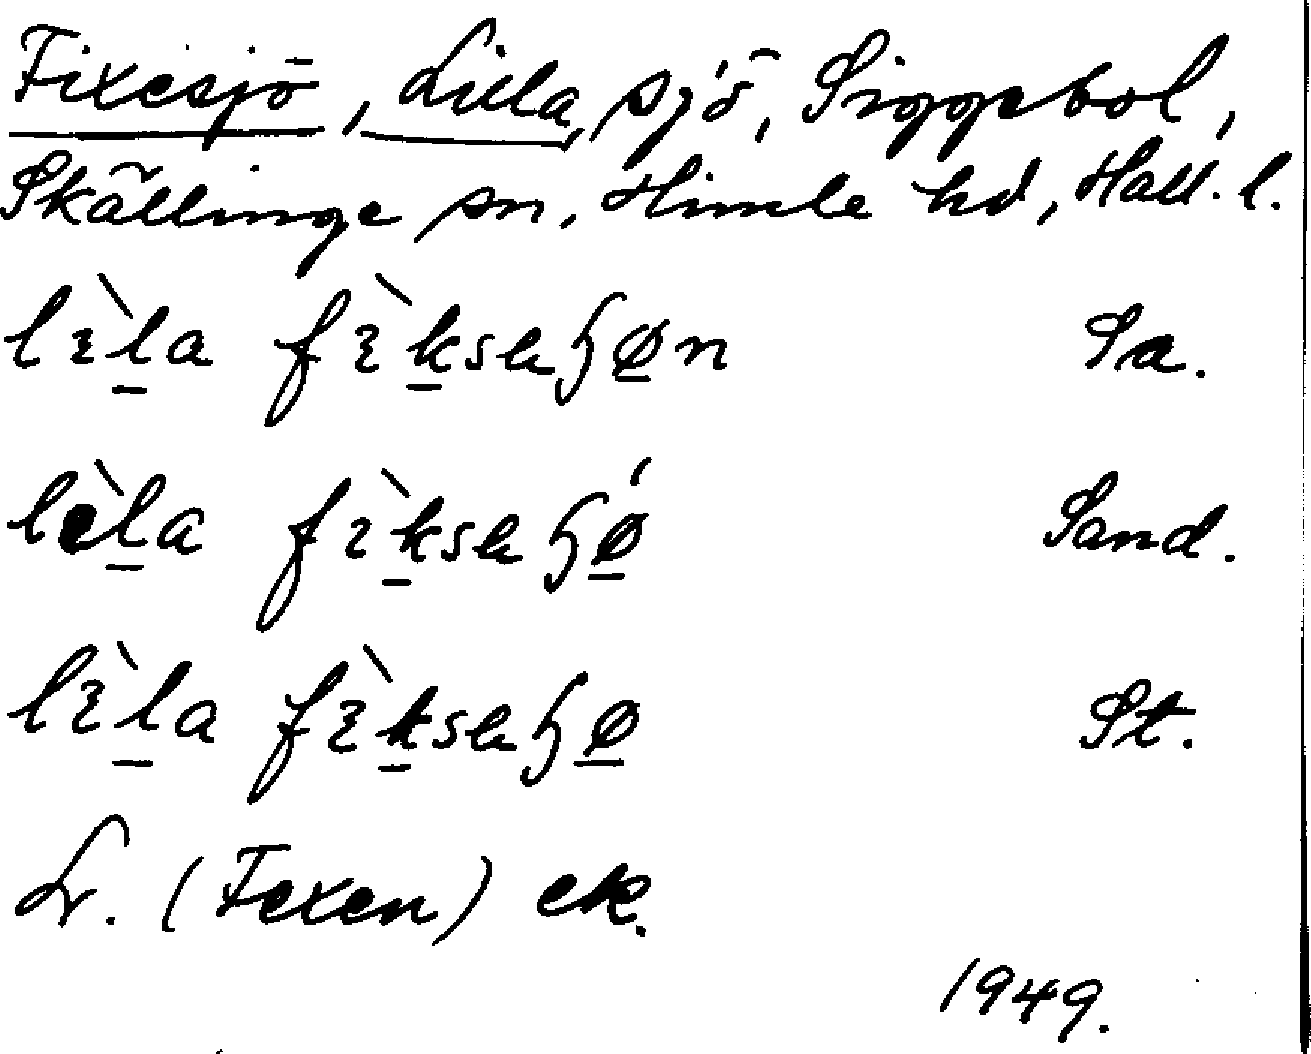 Fixesjö, Lilla, sjö, Siggebol,
Skällinge sn, Himle hd, Hall. l.
lɩ̀l̠a fɩ̀k̠səɧø̠n Sa.
lèl̠a fɩ̀k̠səɧǿ̠ Sand.
lɩ̀l̠a fɩ̀k̠səɧø̠ St.
Lr. (Fexen) ek.
1949.